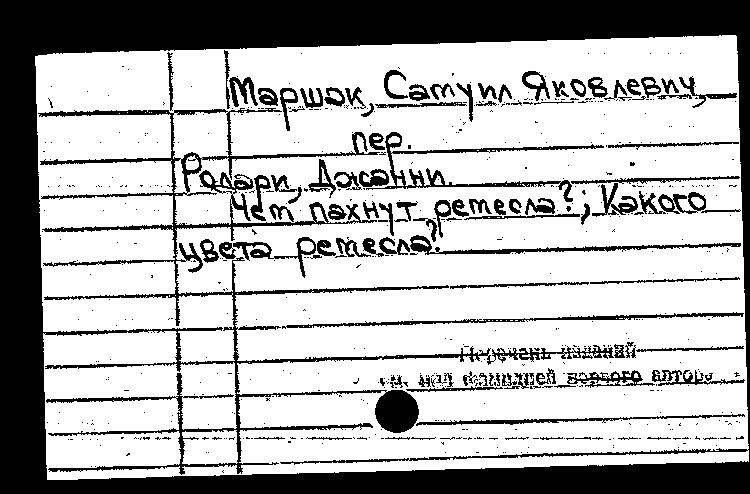 Маршак, Самуил Яковлевич,
пер.
Родари, Джанни.
Чем пахнут ремесла?; Какого
цвета ремесла?
Перечень изданий
см. под фамилией первого автора